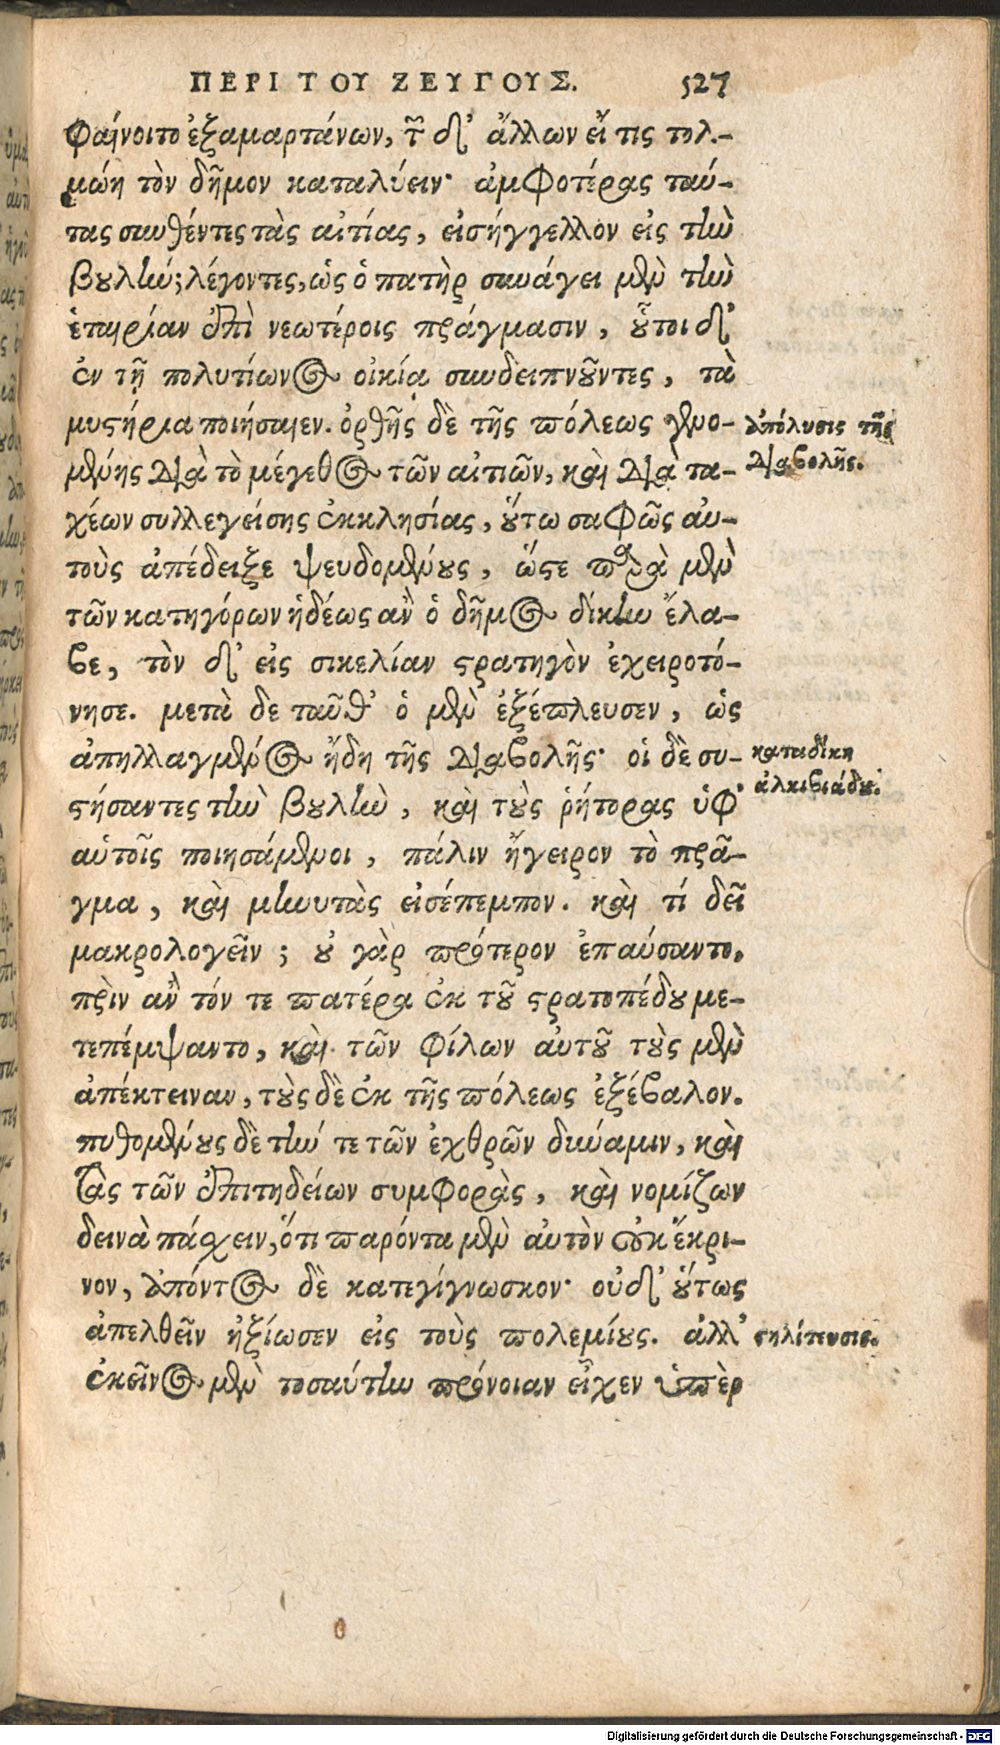 ΠΕΡΙ ΤΟΥ ΖΕΥΓΟΥΣ. 527
φαίνοιτο ἐξαμαρτάνων, τῶν δ’ ἄλλων εἴ τις τολ-
μῴη τὸν δῆμον καταλύειν· ἀμφοτέρας ταύ-
τας συνθέντες τὰς αἰτίας, εἰσήγγελλον εἰς τὴν
βουλήν; λέγοντες, ὡς ὁ πατὴρ συνάγει μὲν τὴν
ἑταιρίαν ἐπὶ νεωτέροις πράγμασιν, οὗτοι δ’
ἐν τῇ πολυτίωνος οἰκίᾳ συνδειπνοῦντες, τὰ
μυστήρια ποιήσαιεν. ὀρθῆς δὲ τῆς πόλεως γενο-
μένης διὰ τὸ μέγεθος τῶν αἰτιῶν, καὶ διὰ τα-
χέων συλλεγείσης ἐκκλησίας, οὕτω σαφῶς αὐ-
τοὺς ἀπέδειξε ψευδομένους, ὥστε παρὰ μὲν
τῶν κατηγόρων ἡδέως ἂν ὁ δῆμος δίκην ἔλα-
βε, τὸν δ’ εἰς σικελίαν στρατηγὸν ἐχειροτό-
νησε. μετὰ δὲ ταῦθ’ ὁ μὲν ἐξέπλευσεν, ὡς
ἀπηλλαγμένος ἤδη τῆς διαβολῆς· οἱ δὲ συ-
στήσαντες τὴν βουλὴν, καὶ τοὺς ῥήτορας ὑφ’
αὑτοῖς ποιησάμενοι, πάλιν ἤγειρον τὸ πρᾶ-
γμα, καὶ μηνυτὰς εἰσέπεμπον. καὶ τί δεῖ
μακρολογεῖν; οὐ γὰρ πρότερον ἐπαύσαντο,
πρὶν ἂν τόν τε πατέρα ἐκ τοῦ στρατοπέδου με-
τεπέμψαντο, καὶ τῶν φίλων αὐτοῦ τοὺς μὲν
ἀπέκτειναν, τοὺς δὲ ἐκ τῆς πόλεως ἐξέβαλον.
πυθομένους δὲ τὴν τε τῶν ἐχθρῶν δύναμιν, καὶ
τὰς τῶν ἐπιτηδείων συμφορὰς, καὶ νομίζων
δεινὰ πάσχειν, ὅτι παρόντα μὲν αὐτὸν οὐκ ἔκρι-
νον, ἀπόντος δὲ κατεγίγνωσκον· οὐδ’ οὕτως
ἀπελθεῖν ἠξίωσεν εἰς τοὺς πολεμίους. ἀλλ’
ἐκεῖνος μὲν τοσαύτην πρόνοιαν εἶχεν ὑπὲρ
ἀπόλυσις τῆς
διαβολῆς.
καταδίκη
ἀλκιβιάδου.
στηλίτευσις.
Digitalisierung gefördert durch die Deutsche Forschungsgemeinschaft - DFG